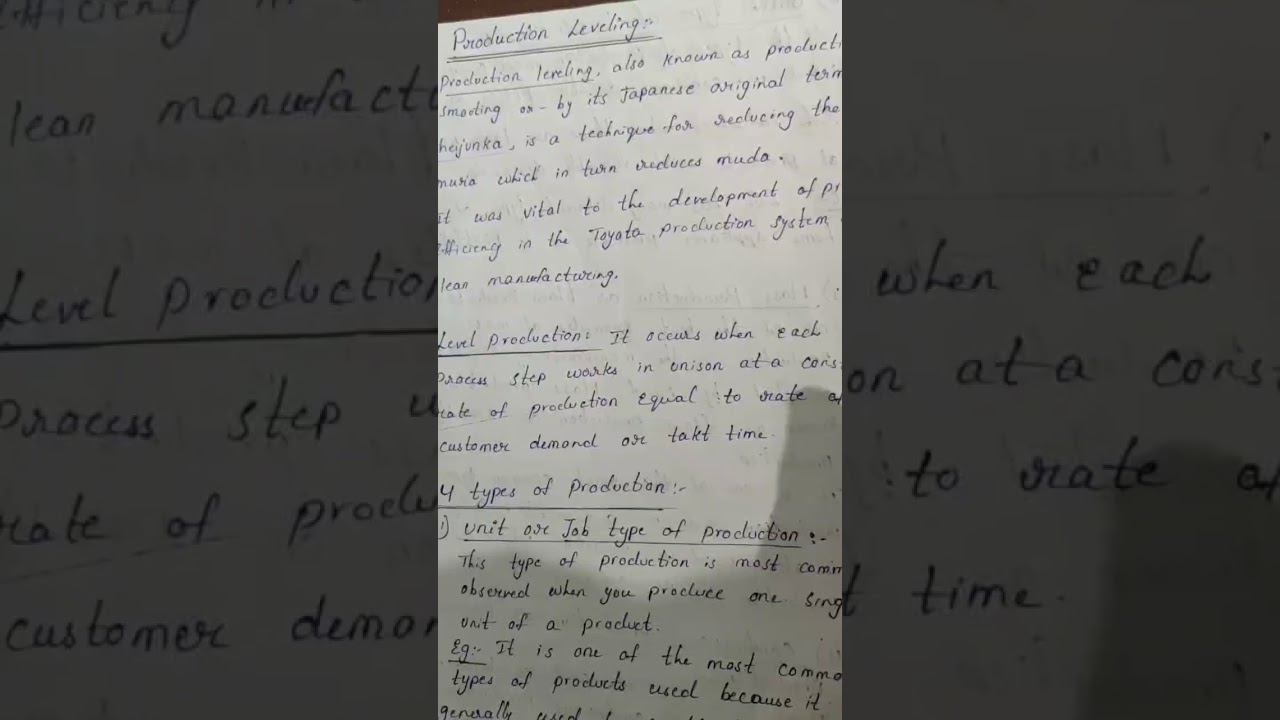 Production Leveling:-
Production leveling, also known as producti
smooting or - by its Japanese original term
heijunka, is a technique for reducing the
mura which in turn reduces muda.
It was vital to the development of pr
efficiency in the Toyata production system
lean manufacturing.
Level production: It occurs when each
process step works in unison at a cons
rate of production equal to rate of
customer demand or takt time.
4 types of production:-
1) Unit or Job type of production:-
This type of production is most comm
observed when you produce one sing
unit of a product.
Eg:- It is one of the most commo
types of products used because it
generally used